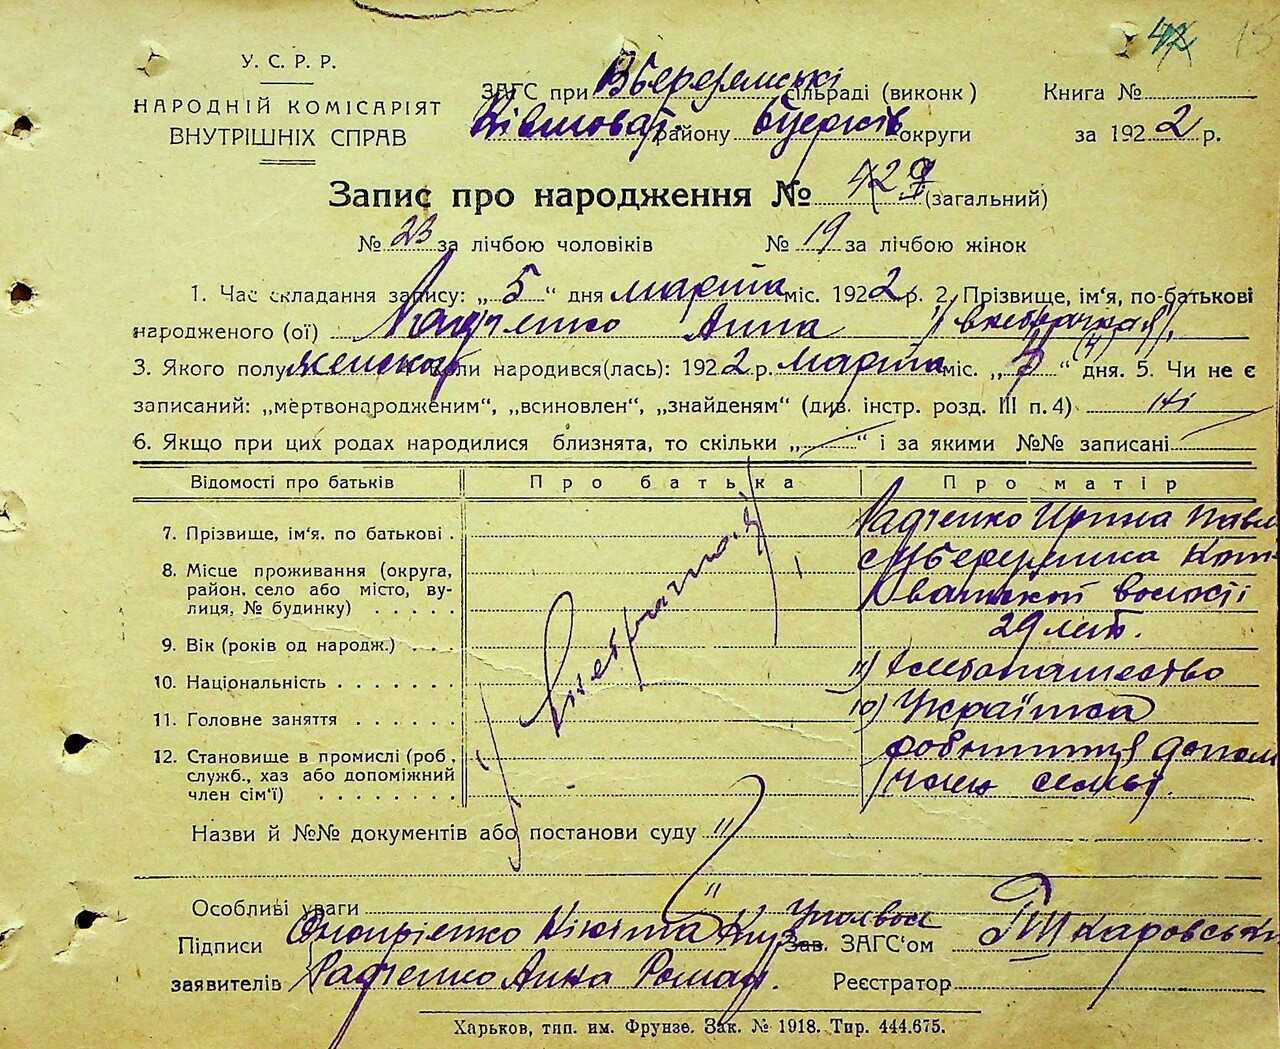 42 15
У. С. Р. Р.
НАРОДНІЙ КОМІСАРІЯТ
ВНУТРІШНІХ СПРАВ
ЗАГС при сільраді (виконк)
району округи
Книга №
за 1922 р.
Запис про народження № 42 (загальний)
№ 23 за лічбою чоловіків № 19 за лічбою жінок
1. Час складання запису: „5“ дня марта міс. 1922 р. 2. Прізвище, ім'я, по-батькові
народженого (ої) Радченко Анна (внебрачная)
3. Якого полу женска Коли народився(лась): 1922 р. марта міс. „ “ дня. 5. Чи не є
записаний: „мертвонародженим“, „всиновлен“, „знайденям“ (див. інстр. розд. III п. 4) ні
6. Якщо при цих родах народилися близнята, то скільки „ “ і за якими №№ записані
Відомості про батьків Про батька Про матір
7. Прізвище, ім'я, по батькові . Радченко Ирина Павл
8. Місце проживання (округа,
район, село або місто, ву-
лиця, № будинку) . . . . . волості
9. Вік (років од народж.) . . . 29 лет.
10. Національність . . . . . . . 11) хлебопашество
11. Головне заняття . . . . . . 10) Українка
12. Становище в промислі (роб.,
служб., хаз або допоміжний
член сім'ї) . . . . . . . . робітниця допом
член семьї
(Внебрачная)
Назви й №№ документів або постанови суду "
Особливі уваги "
Підписи Оноприенко Нікіта Зав. ЗАГС'ом Шкаровськи
заявителів Радченко Анна Роман. Реєстратор
Харьков, тип. им. Фрунзе. Зак. № 1918. Тир. 444.675.